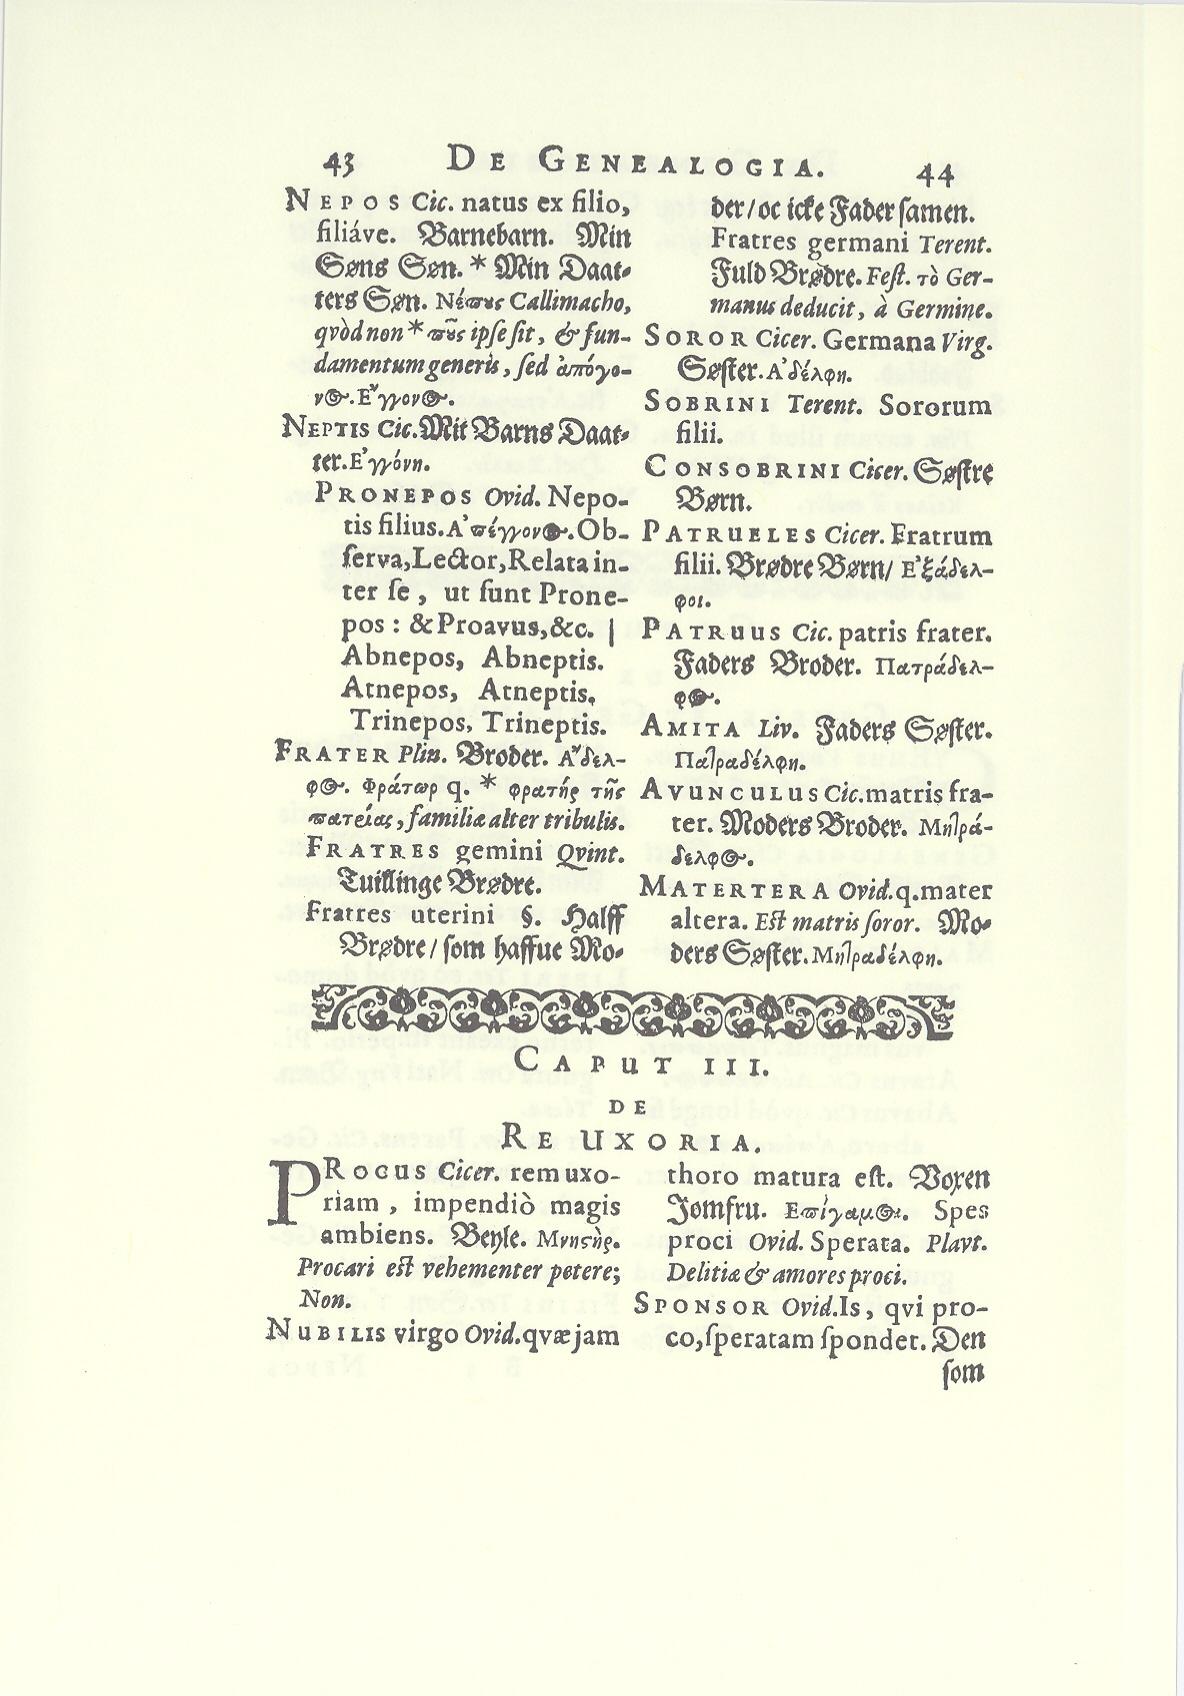 43 DE GENEALOGIA. 44
NEPOS Cic. natus ex filio,
filiáve. Barnebarn. Min
Søns Søn. * Min Daat-
ters Søn. Νέπους Callimacho,
qvòd non * ποῦς ipse sit, & fun-
damentum generis, sed ἀπόγο-
νος. Ἔγγονος.
NEPTIS Cic. Mit Barns Daat-
ter. Ἐγγόνη.
PRONEPOS Ovid. Nepo-
tis filius. Ἀπέγγονος. Ob-
serva, Lector, Relata in-
ter se, ut sunt Prone-
pos: & Proavus, &c. |
Abnepos, Abneptis.
Atnepos, Atneptis,
Trinepos, Trineptis.
FRATER Plin. Broder. Ἄδελ-
φος. Φράτωρ q. * φρατὴς τῆς
πατείας, familiæ alter tribulis.
FRATRES gemini Qvint.
Tuillinge Brødre.
Fratres uterini §. Halff
Brødre / som haffue Mo-
der / oc icke Fader samen.
Fratres germani Terent.
Fuld Brødre. Fest. τὸ Ger-
manus deducit, à Germine.
SOROR Cicer. Germana Virg.
Søster. Ἀδέλφη.
SOBRINI Terent. Sororum
filii.
CONSOBRINI Cicer. Søstre
Børn.
PATRUELES Cicer. Fratrum
filii. Brødre Børn / Ἐξάδελ-
φοι.
PATRUUS Cic. patris frater.
Faders Broder. Πατράδελ-
φος.
AMITA Liv. Faders Søster.
Πατραδέλφη.
AVUNCULUS Cic. matris fra-
ter. Moders Broder. Μητρά-
δελφος.
MATERTERA Ovid. q. mater
altera. Est matris soror. Mo-
ders Søster. Μητραδέλφη.
CAPUT III.
DE
RE UXORIA.
PROCUS Cicer. rem uxo-
riam, impendiò magis
ambiens. Beyle. Μνηστὴς.
Procari est vehementer petere;
Non.
NUBILIS virgo Ovid. qvæ jam
thoro matura est. Voxen
Jomfru. Ἐπίγαμος. Spes
proci Ovid. Sperata. Plavt.
Delitiæ & amores proci.
SPONSOR Ovid. Is, qvi pro-
co, speratam spondet. Den
som